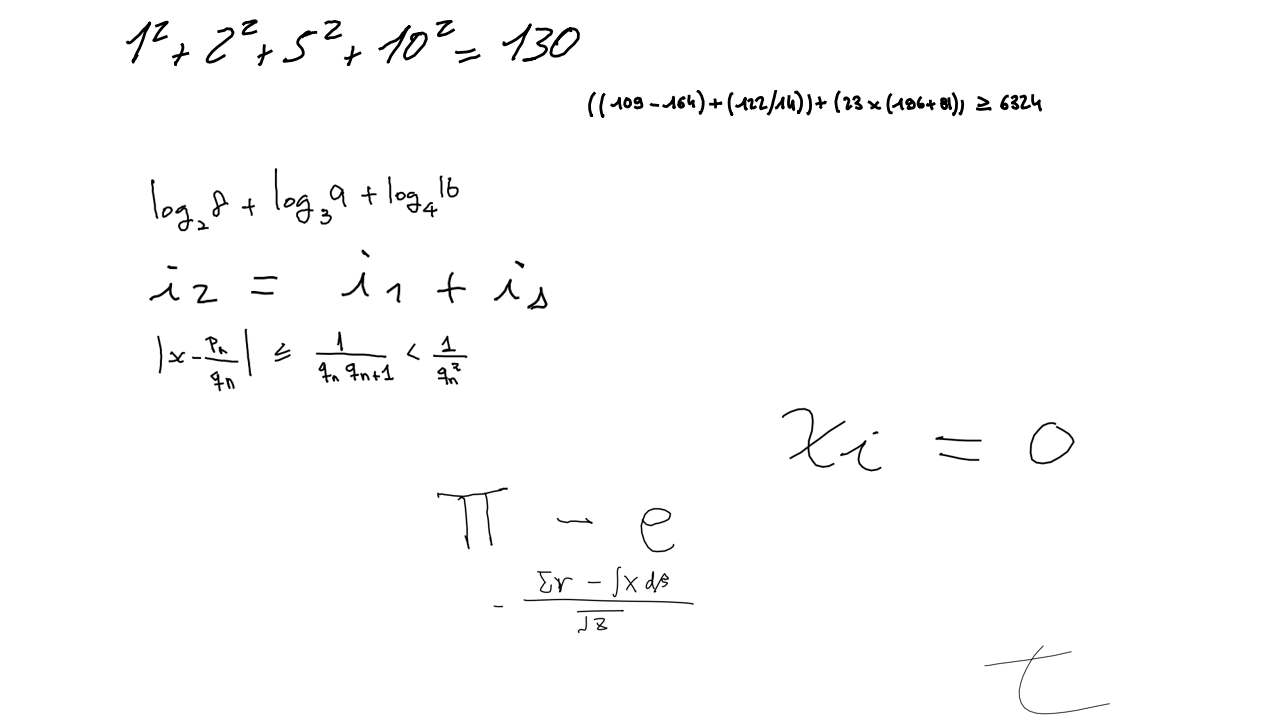 1² + 2² + 5² + 10² = 130
((109 - 164) + (122/14)) + (23 × (196 + 81)) ≥ 6324
log₂8 + log₃9 + log₄16
i₂ = i₁ + i_s
|x - pₙ/qₙ| ≤ 1/(qₙ qₙ₊₁) < 1/qₙ²
xᵢ = 0
π - e
- (Σr - ∫x dβ)/√z
t